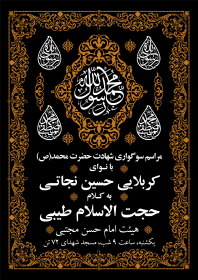 محمد رسول الله
مراسم سوگواری شهادت حضرت محمد(ص)
با نوای
کربلایی حسین نجاتی
به کلام
حجت الاسلام طیبی
هیئت امام حسن مجتبی
یکشنبه، ساعت ۹ شب، مسجد شهدای ۷۲ تن